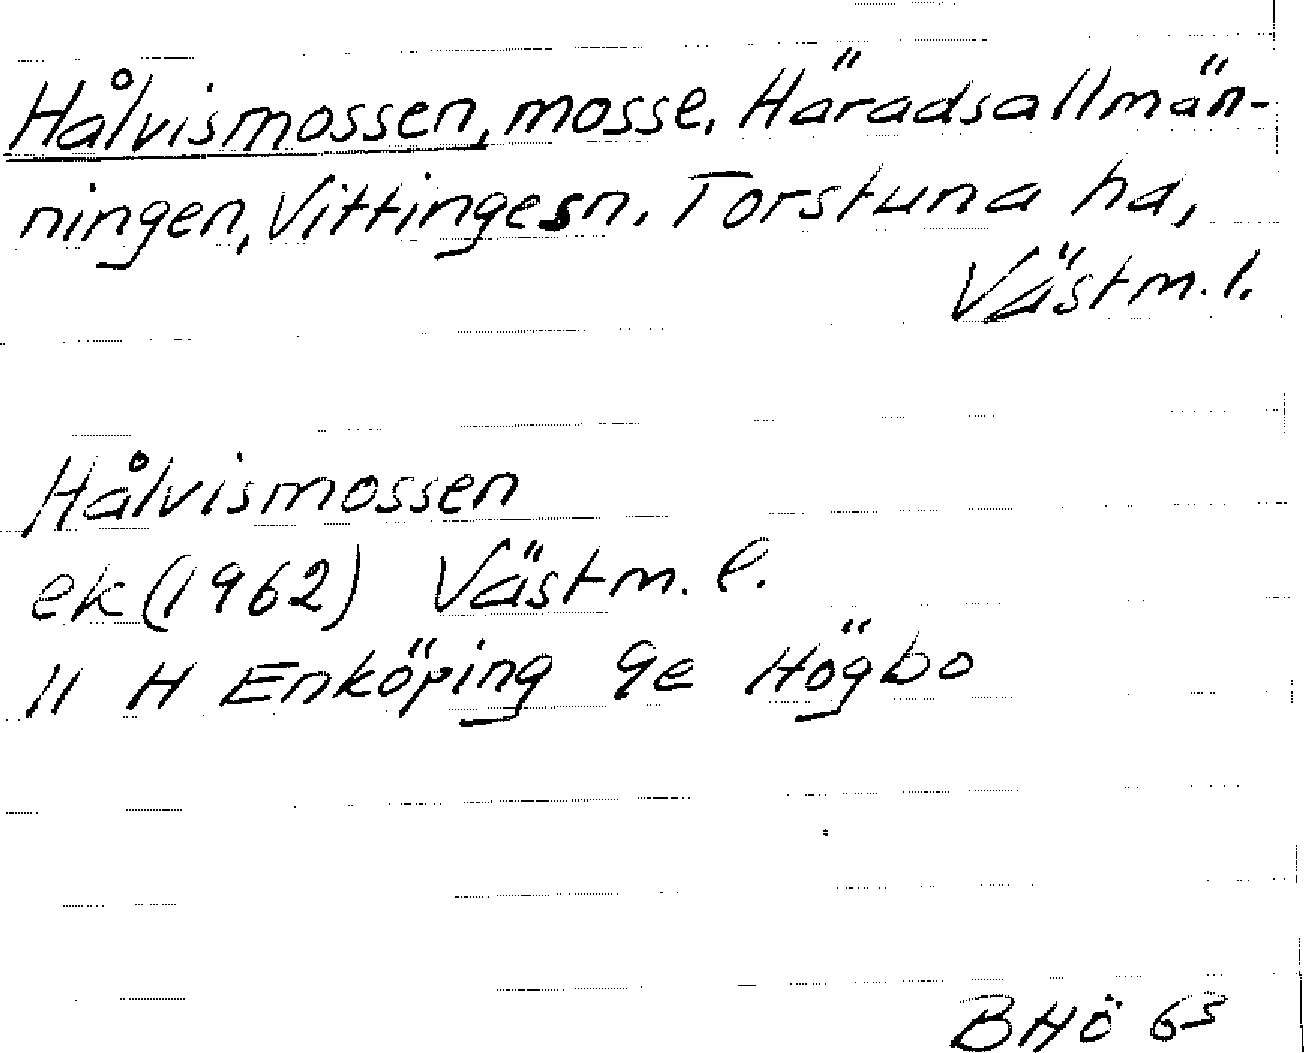 Hålvismossen, mosse, Häradsallmän-
ningen, Vittinge sn. Torstuna hd,
Västm. l.
Hålvismossen
ek (1962) Västm. l.
11 H Enköping 9e Högbo
BHÖ 63